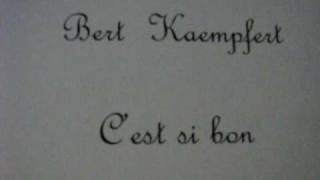 Bert Kaempfert
C'est si bon